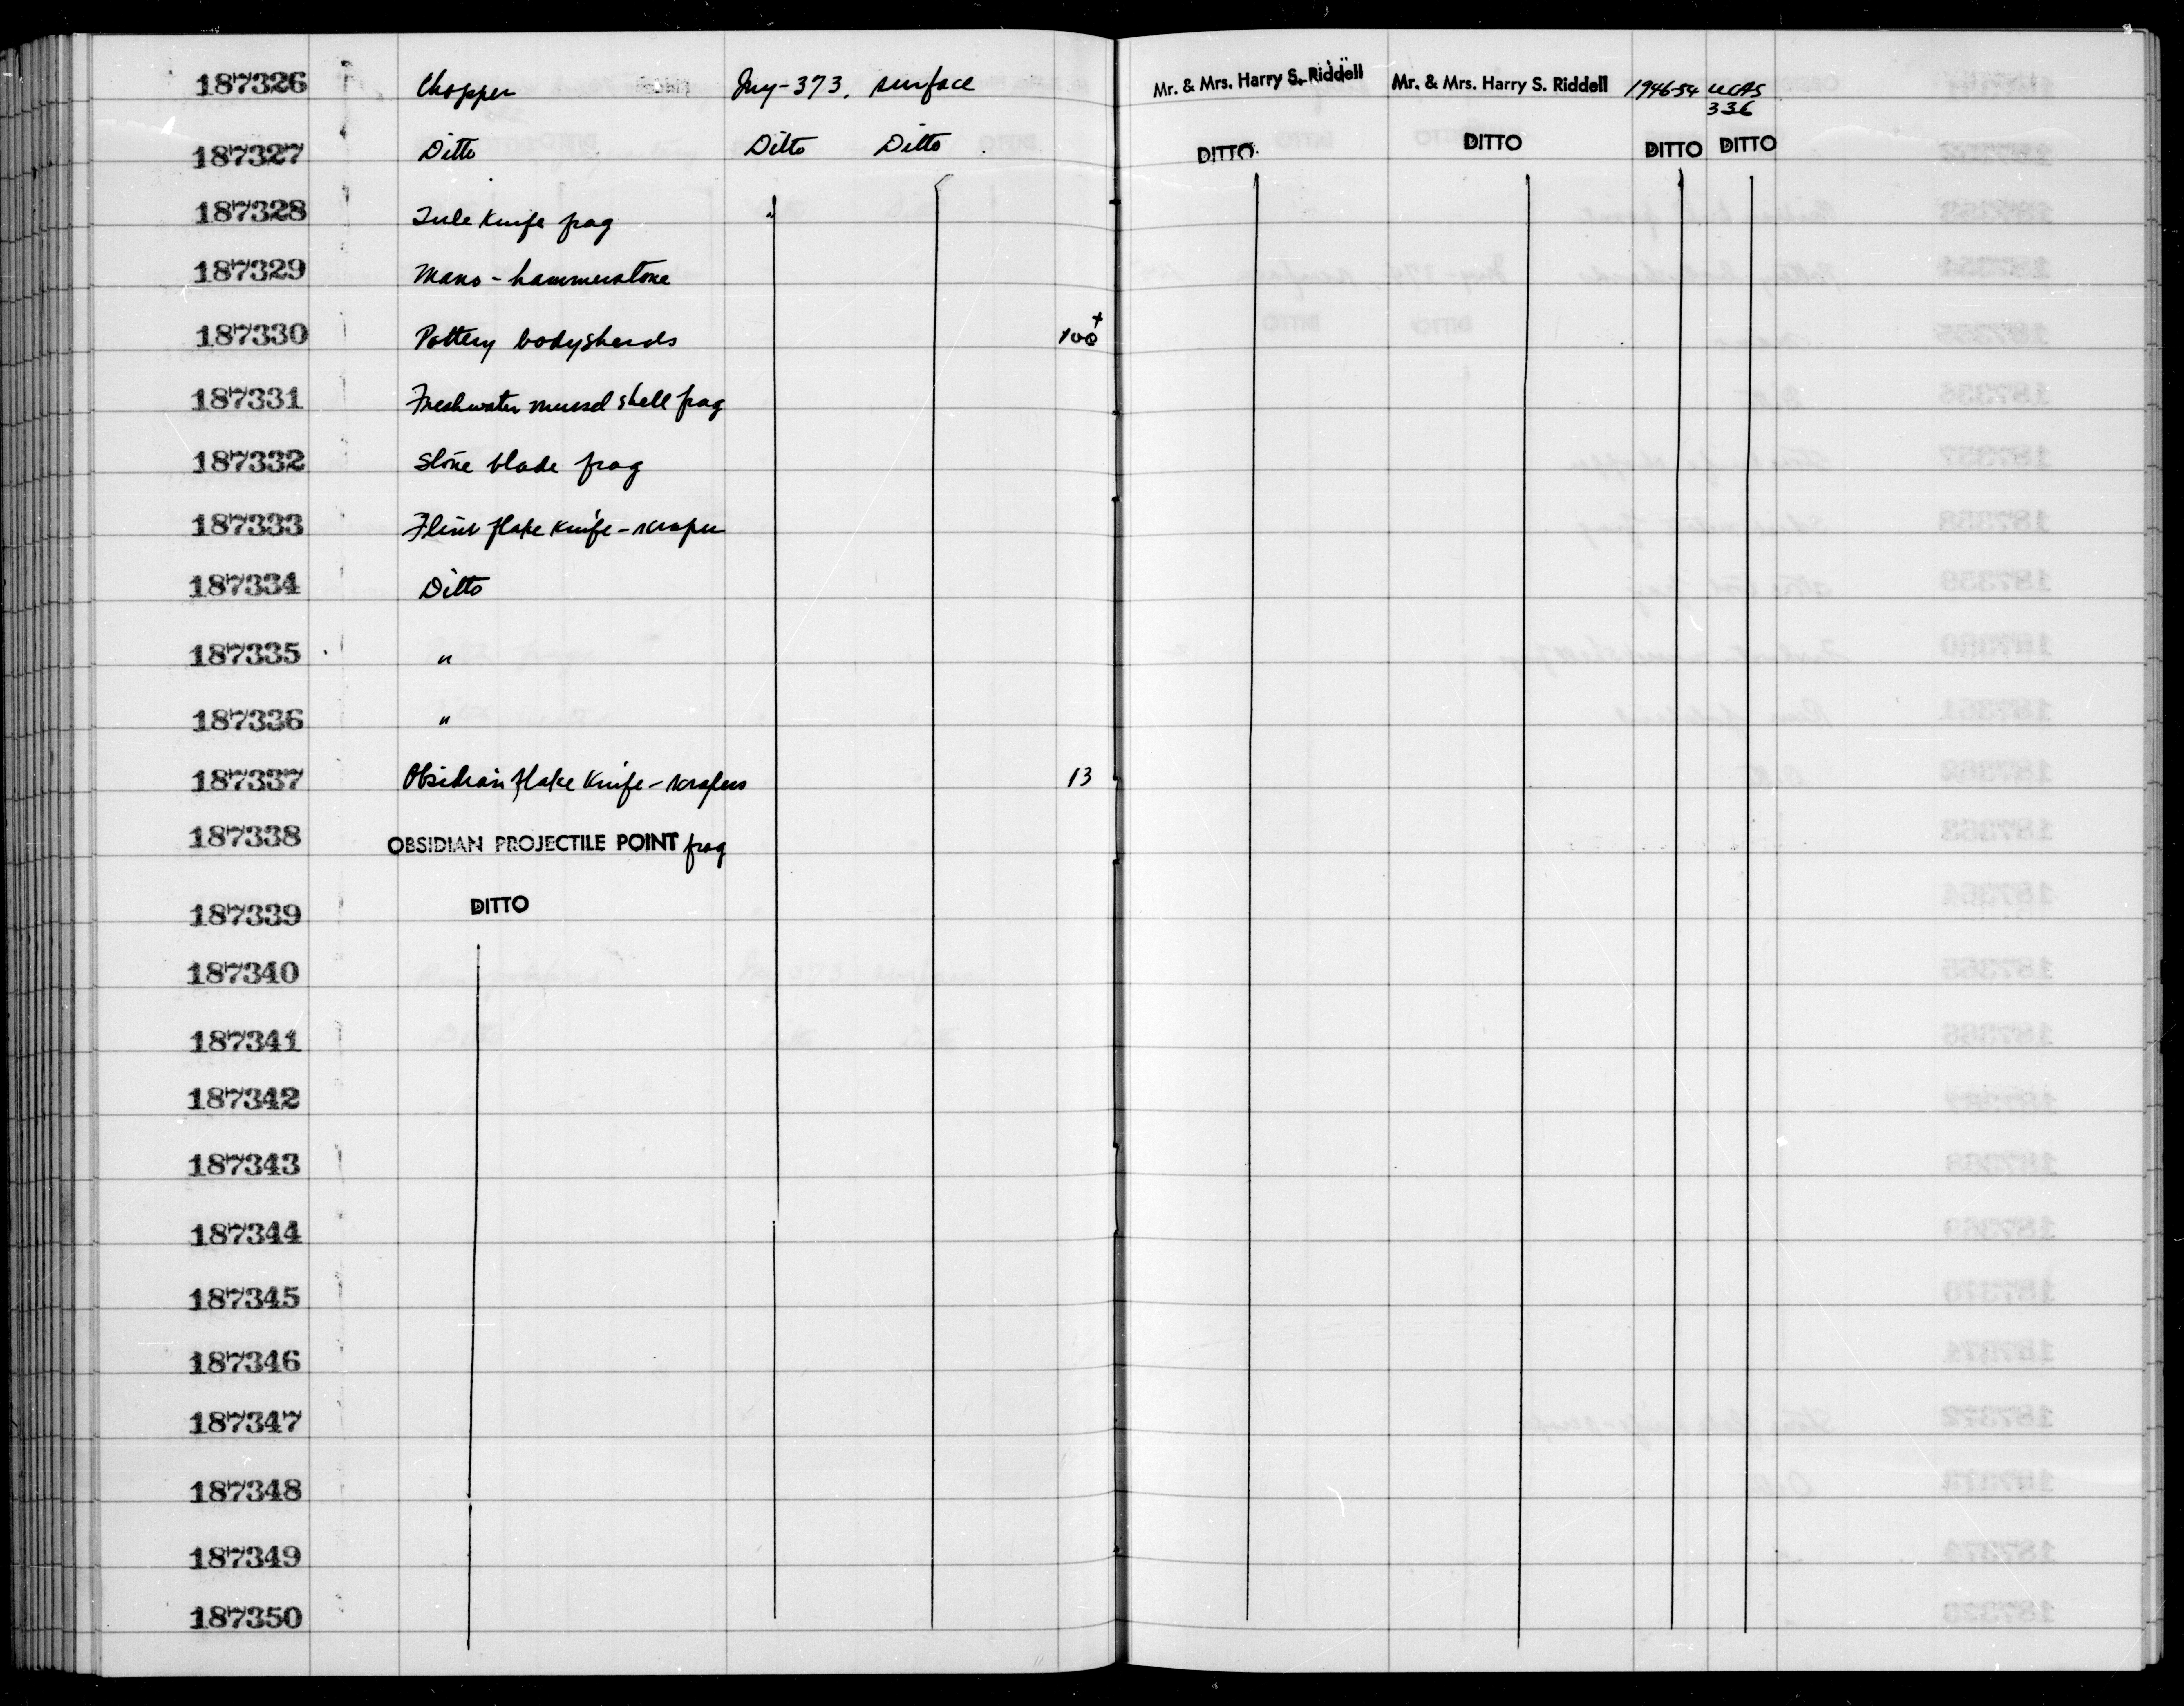 187326 Chopper Iny-373, surface Mr. & Mrs. Harry S. Riddell Mr. & Mrs. Harry S. Riddell 1946-54 UCAS
336
187327 Ditto Ditto Ditto DITTO DITTO DITTO DITTO
187328 Tule Knife frag "
187329 Mano - hammerstone
187330 Pottery bodysherds 100+
187331 Freshwater mussel shell frag
187332 Stone blade frag
187333 Flint flake knife - scraper
187334 Ditto
187335 "
187336 "
187337 Obsidian flake knife - scrapers 13
187338 OBSIDIAN PROJECTILE POINT frag
187339 DITTO
187340
187341
187342
187343
187344
187345
187346
187347
187348
187349
187350